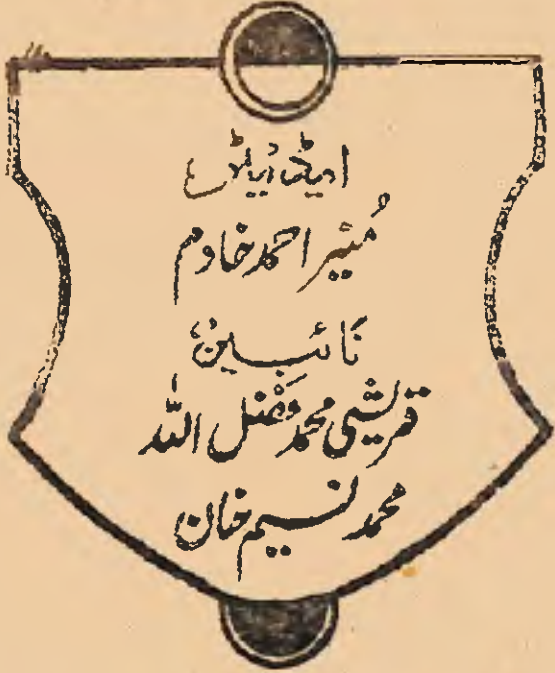 ایڈیٹر
مُنیر احمد خادم
نَائبین
قریشی محمد فضل اللہ
محمد نسیم خان